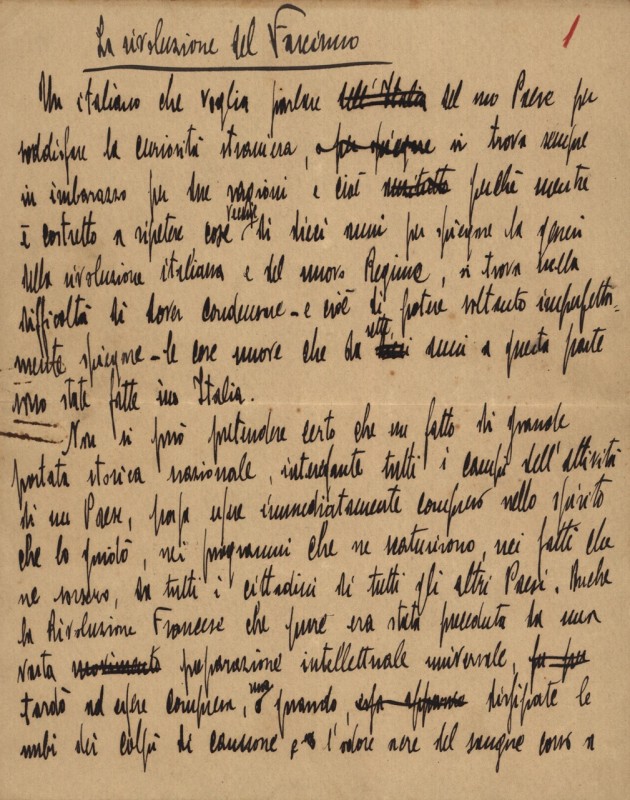 La rivoluzione del Fascismo
1
Un italiano che voglia parlare dell'Italia del suo Paese per
soddisfare la curiosità straniera, si trova sempre
in imbarazzo per due ragioni e cioè perchè mentre
è costretto a ripetere cose vecchie di dieci anni per spiegare la genesi
della rivoluzione italiana e del nuovo Regime, si trova nella
difficoltà di dover condensare - e cioè di potere soltanto imperfetta-
mente spiegare - le cose nuove che da sette anni a questa parte
sono state fatte in Italia.
Non si può pretendere certo che un fatto di grande
portata storica nazionale, interessante tutti i campi dell'attività
di un Paese, possa essere immediatamente compreso nello spirito
che lo guidò, nei programmi che ne scaturirono, nei fatti che
ne sorsero, da tutti i cittadini di tutti gli altri Paesi. Anche
la Rivoluzione Francese che pure era stata preceduta da una
vasta movimento preparazione intellettuale universale,
tardò ad essere compresa, ma quando, dissipate le
nubi dei colpi di cannone e l'odore acre del sangue corso a